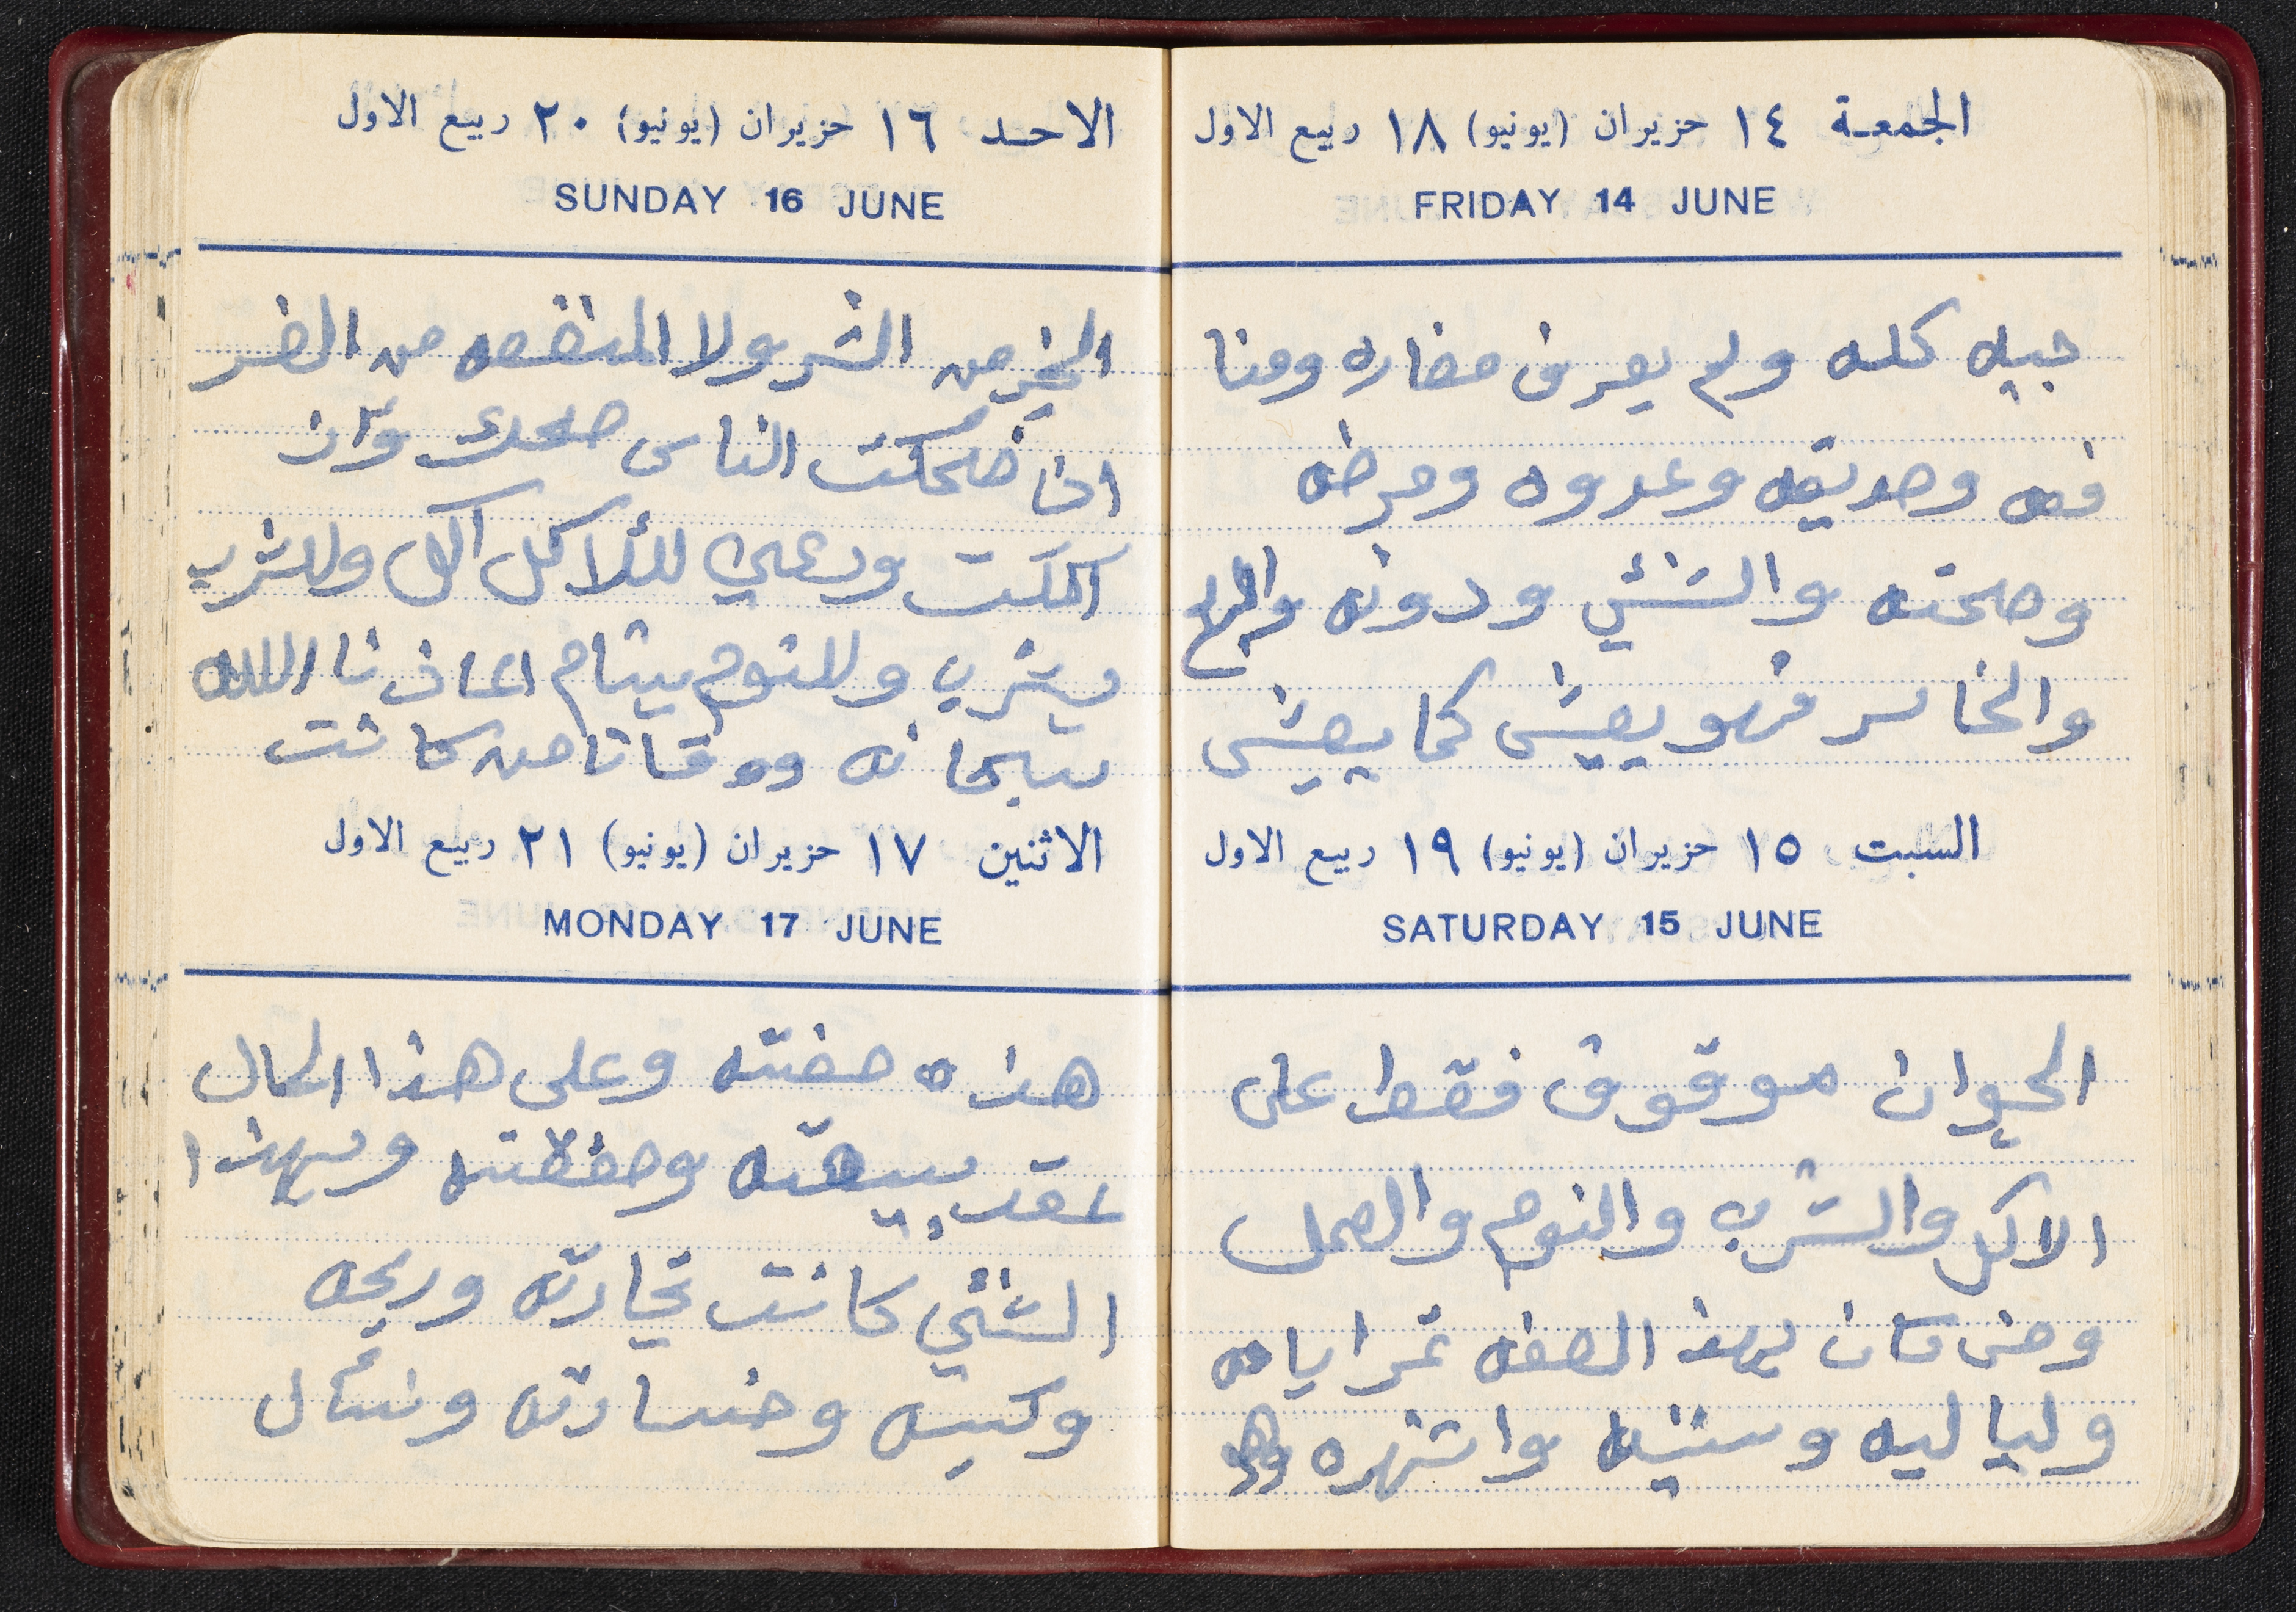 الجمعة ١٤ حزيران (يونيو) ١٨ ربيع الاول
FRIDAY 14 JUNE
جيبه كله ولم يعرف مضاره ومنا
فعه وصديقه وعدوه ومرضه
وصحته والشئي ودونه والربح
والخاسر فهو يعيش كما يعيش
السبت ١٥ حزيران (يونيو) ١٩ ربيع الاول
SATURDAY 15 JUNE
الحيوان موقوف فقط على
الاكل والشرب والنوم والعمل
ومن كان بهذ الصفه تمر ايامه
ولياليه وسنينه واشهره وهو
الاحد ١٦ حزيران (يونيو) ٢٠ ربيع الاول
SUNDAY 16 JUNE
الخير من الشر ولا المنفعه من الضر
اذا ضحكت الناس ضحك وان
اكلت ودعي للأكل اكل وللشرب
يشرب وللنوم ينام اعاذنا الله
سبحانه ووقانا من كانت
الاثنين ١٧ حزيران (يونيو) ٢١ ربيع الاول
MONDAY 17 JUNE
هذه صفته وعلى هذا الحال
عقد بيعته وصفقته وبهذا
الشئي كانت تجارته وربحه
وكسبه وخسارته ونسأل